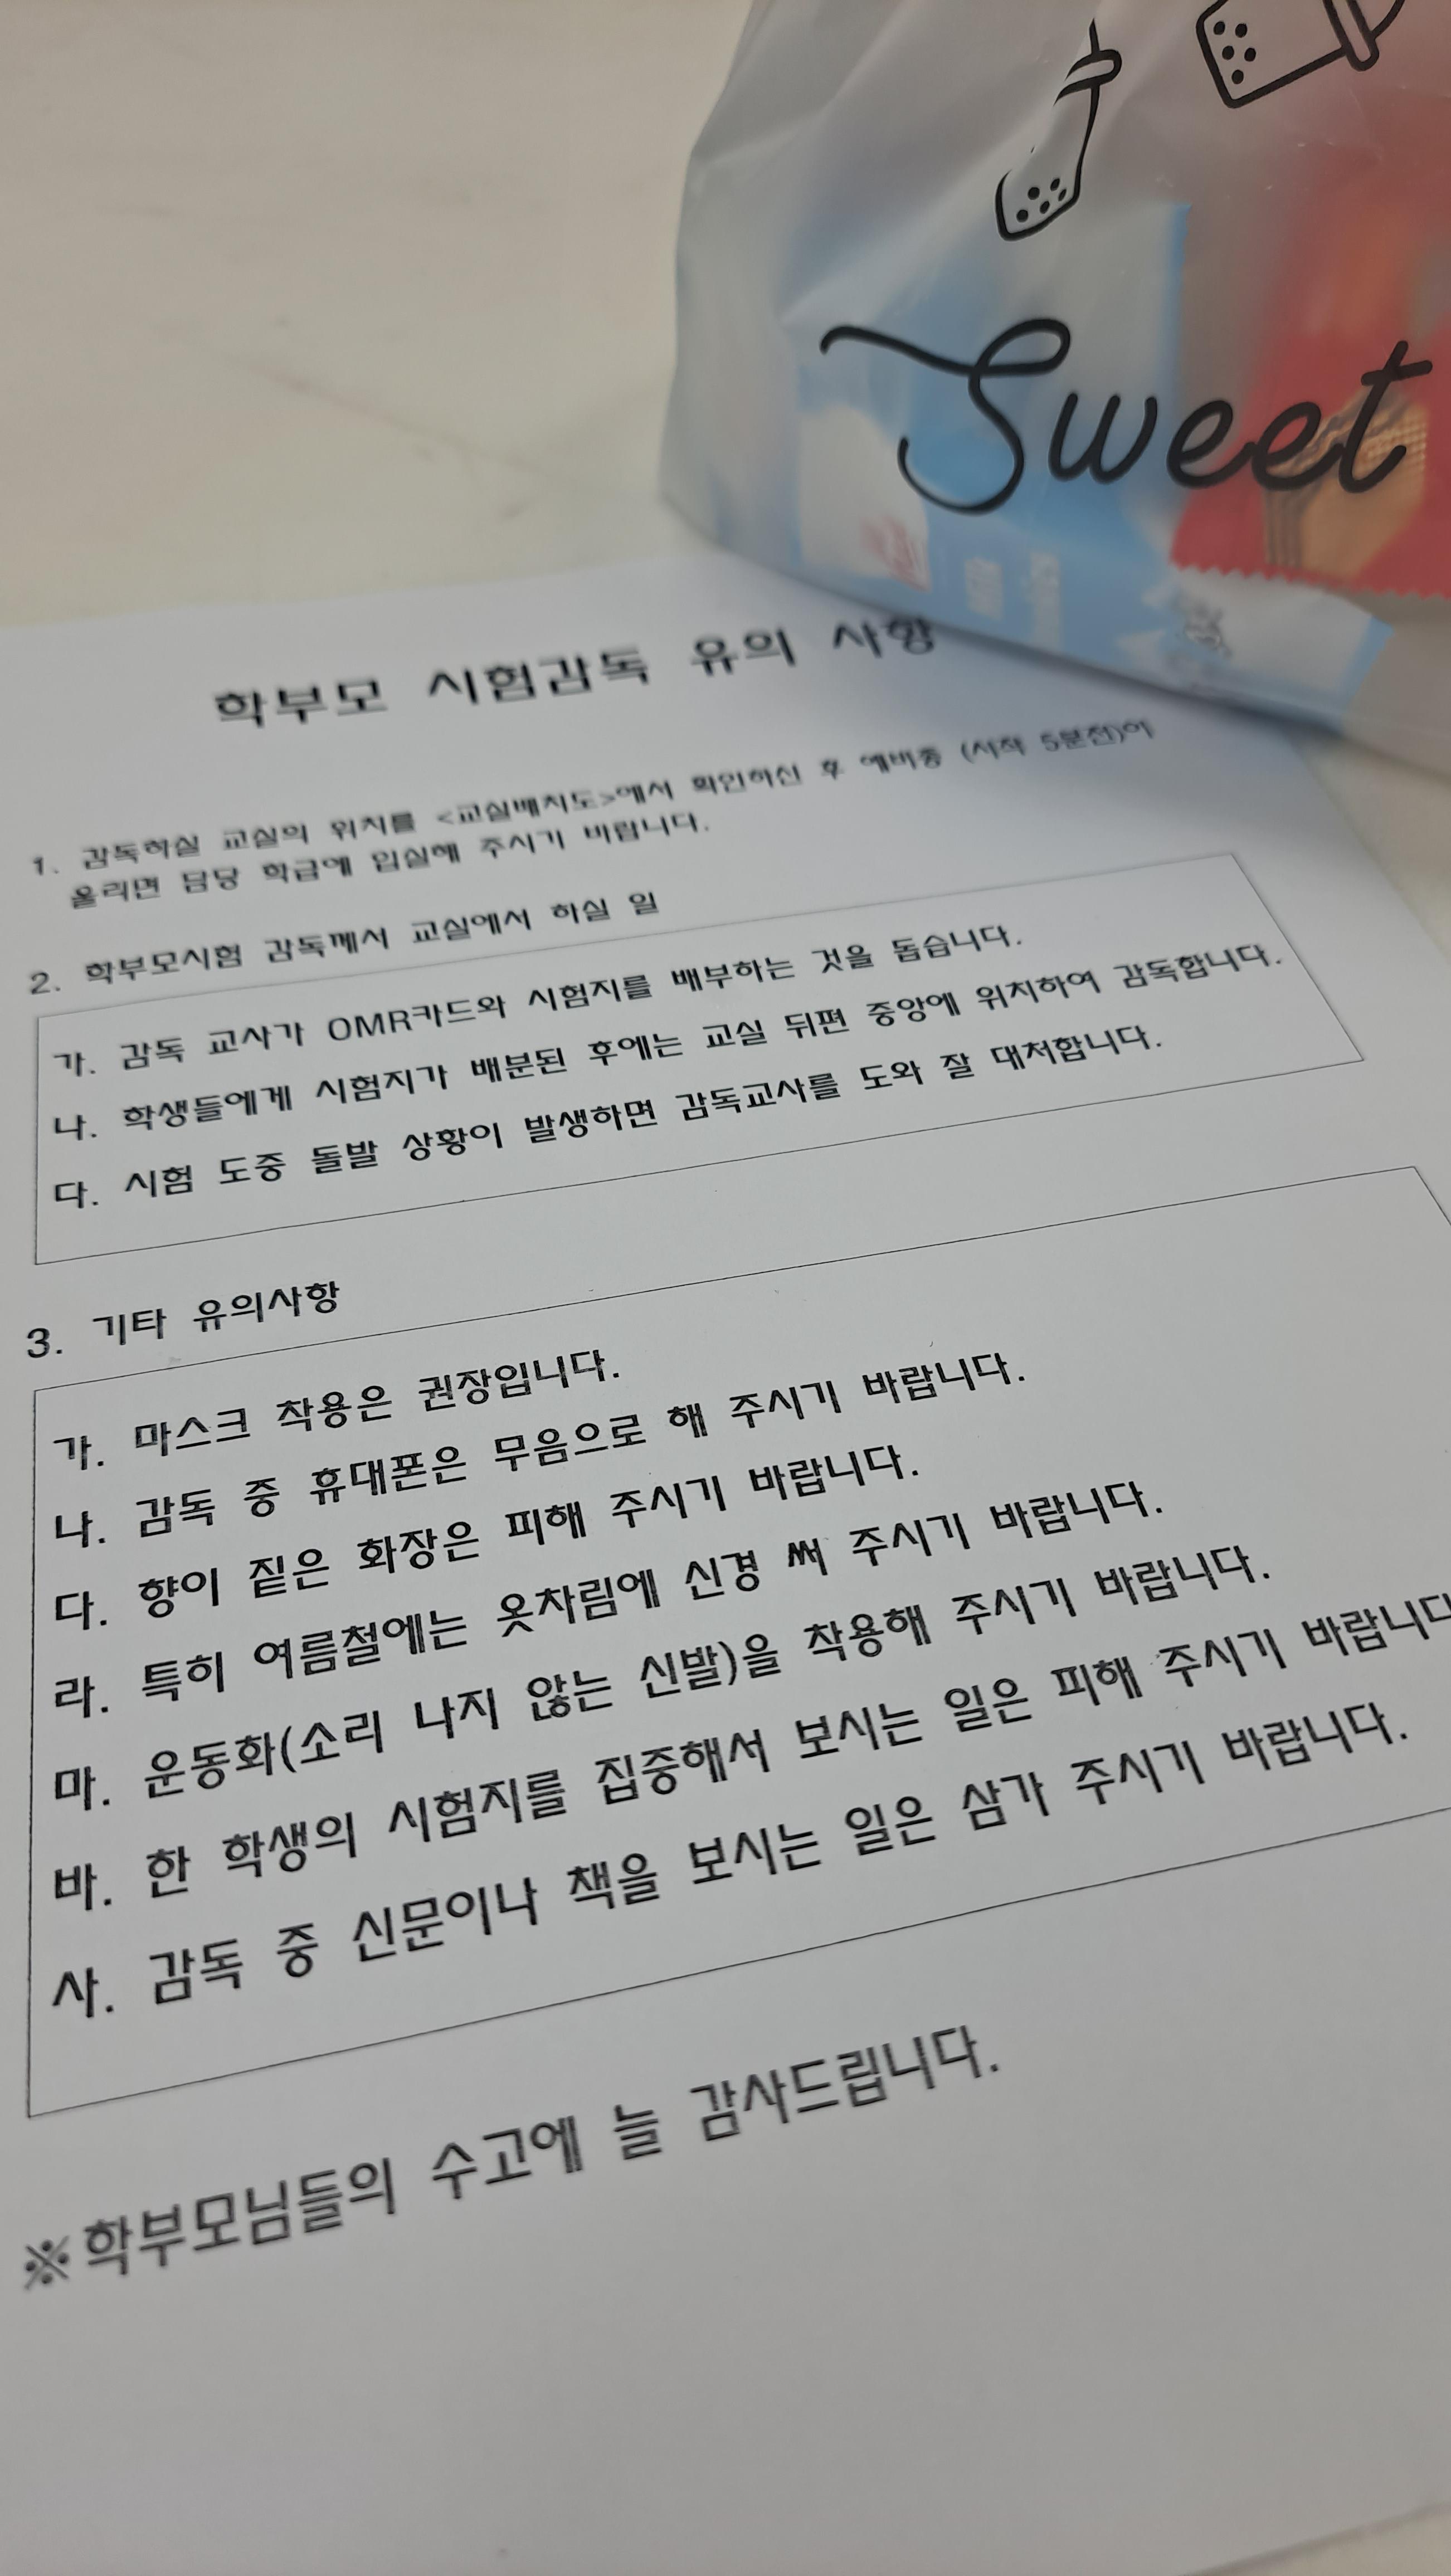 Sweet
학부모 시험감독 유의 사항
1. 감독하실 교실의 위치를 <교실배치도>에서 확인하신 후 예비종 (시작 5분전)이
울리면 담당 학급에 입실해 주시기 바랍니다.
2. 학부모시험 감독께서 교실에서 하실 일
가. 감독 교사가 OMR카드와 시험지를 배부하는 것을 돕습니다.
나. 학생들에게 시험지가 배분된 후에는 교실 뒤편 중앙에 위치하여 감독합니다.
다. 시험 도중 돌발 상황이 발생하면 감독교사를 도와 잘 대처합니다.
3. 기타 유의사항
가. 마스크 착용은 권장입니다.
나. 감독 중 휴대폰은 무음으로 해 주시기 바랍니다.
다. 향이 짙은 화장은 피해 주시기 바랍니다.
라. 특히 여름철에는 옷차림에 신경 써 주시기 바랍니다.
마. 운동화(소리 나지 않는 신발)을 착용해 주시기 바랍니다.
바. 한 학생의 시험지를 집중해서 보시는 일은 피해 주시기 바랍니다
사. 감독 중 신문이나 책을 보시는 일은 삼가 주시기 바랍니다.
※학부모님들의 수고에 늘 감사드립니다.